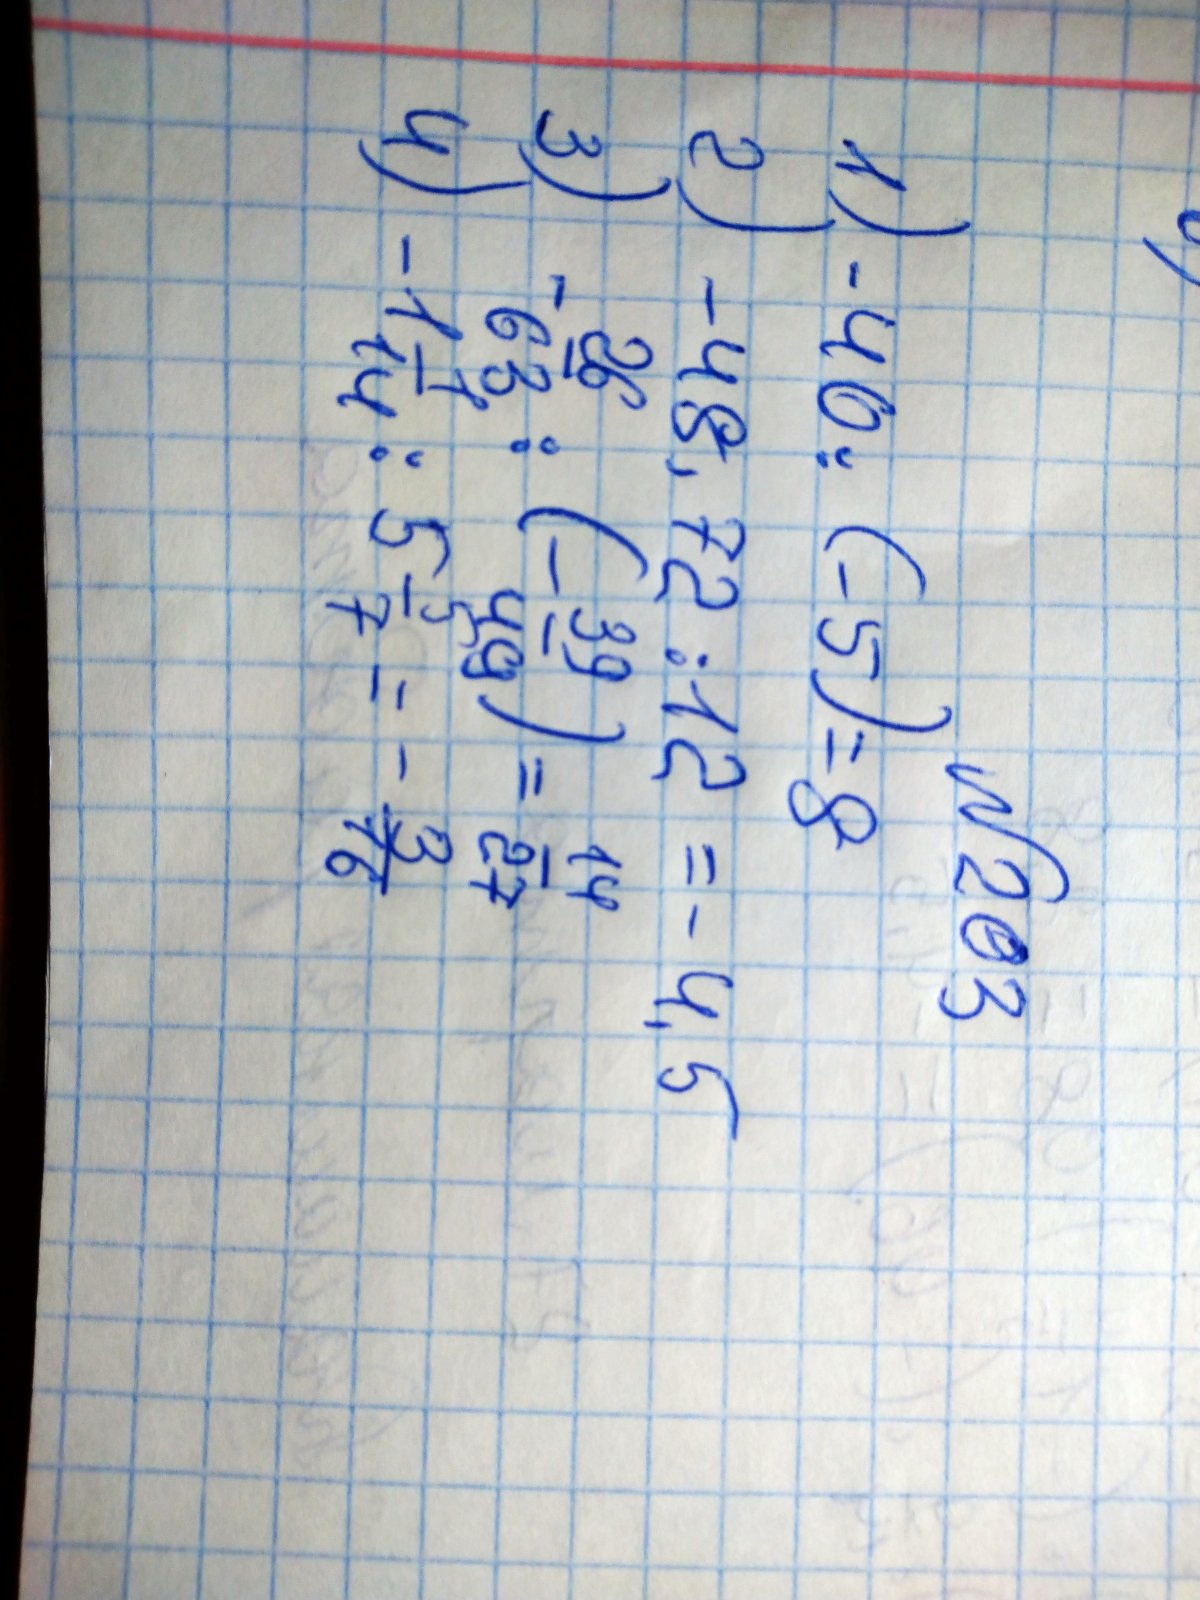 №203
1) -40 : (-5) = 8
2) -48,72 : 12 = - 4,5
3) - 26/63 : (- 39/49) = 14/27
4) -1 1/14 : 5 5/7 = - 3/16